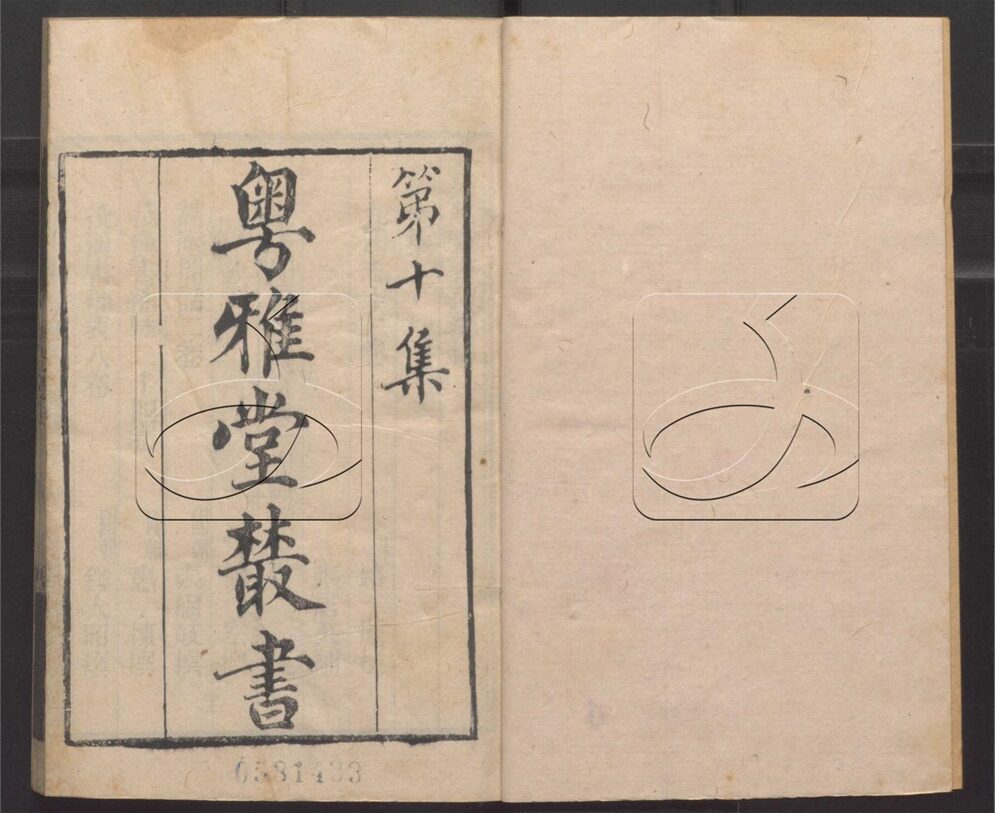 第十集
粵雅堂叢書
0581433